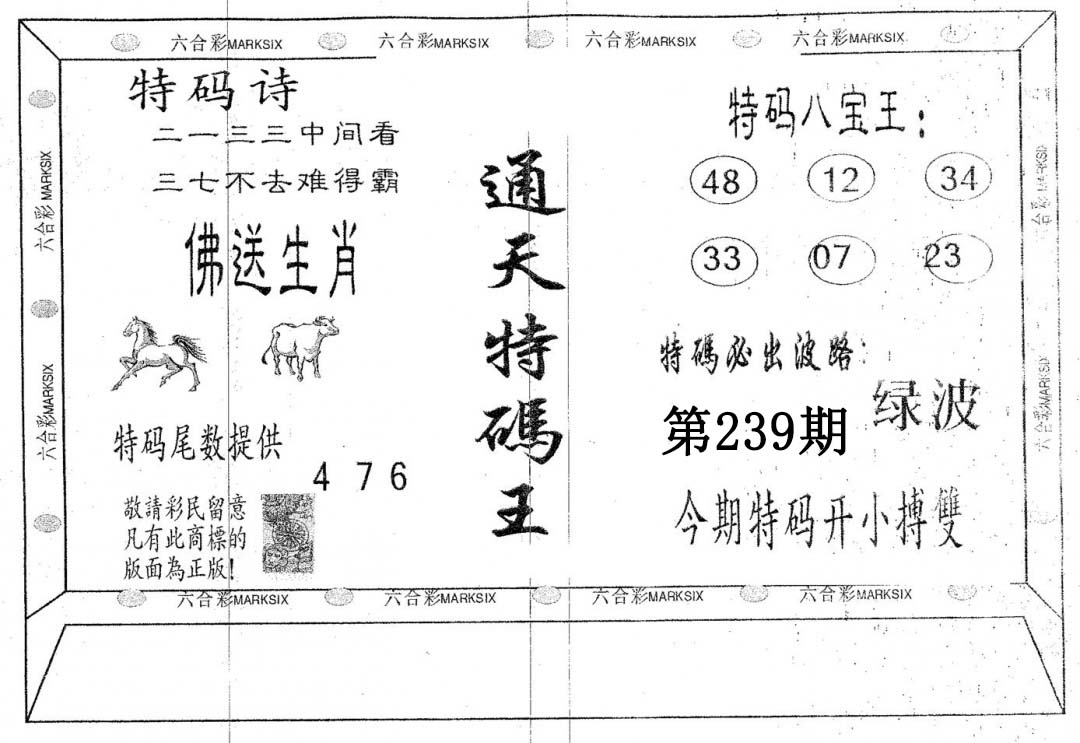 六合彩MARKSIX 六合彩MARKSIX 六合彩MARKSIX 六合彩MARKSIX
特码诗
二一三三中间看
三七不去难得霸
佛送生肖
特码尾数提供
4 7 6
敬請彩民留意
凡有此商標的
版面為正版!
通天特碼王
特码八宝王:
48 12 34
33 07 23
特碼必出波路:
绿波
第239期
今期特码开小搏雙
六合彩MARKSIX
六合彩MARKSIX
六合彩MARKSIX
六合彩MARKSIX
六合彩MARKSIX 六合彩MARKSIX 六合彩MARKSIX 六合彩MARKSIX